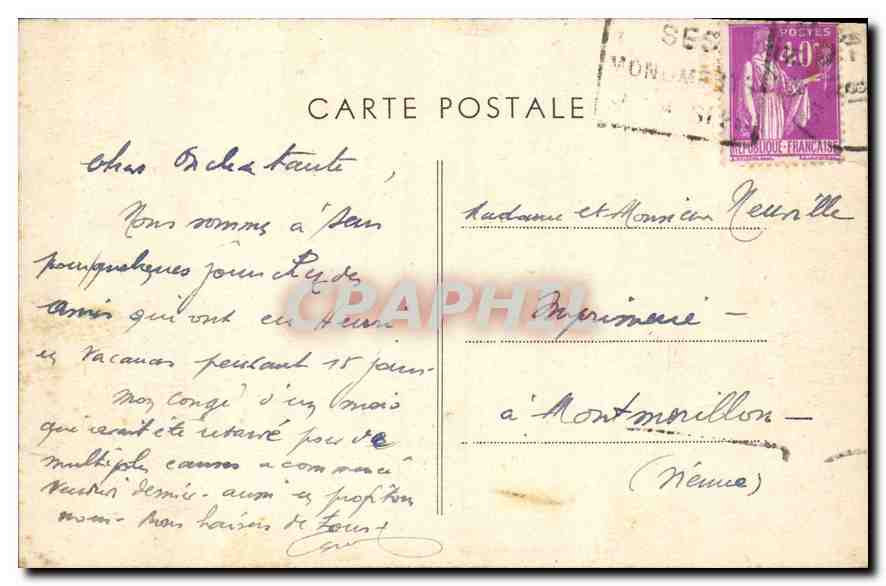 SES
MONUM
POSTES
40c
REPUBLIQUE-FRANÇAISE
CARTE POSTALE
Tante,
Nous sommes à Sens
pour quelques jours chez des
amis qui ont eu Henri
en vacances pendant 15 jours-
Mon congé d'un mois
qui avait été retardé pour de
multiples causes a commencé
vendredi dernier- aussi en profitons
nous- Bons baisers de tous
Madame et Monsieur Neuville
Imprimerie -
à Montmorillon -
(Vienne)
CPAPHIL